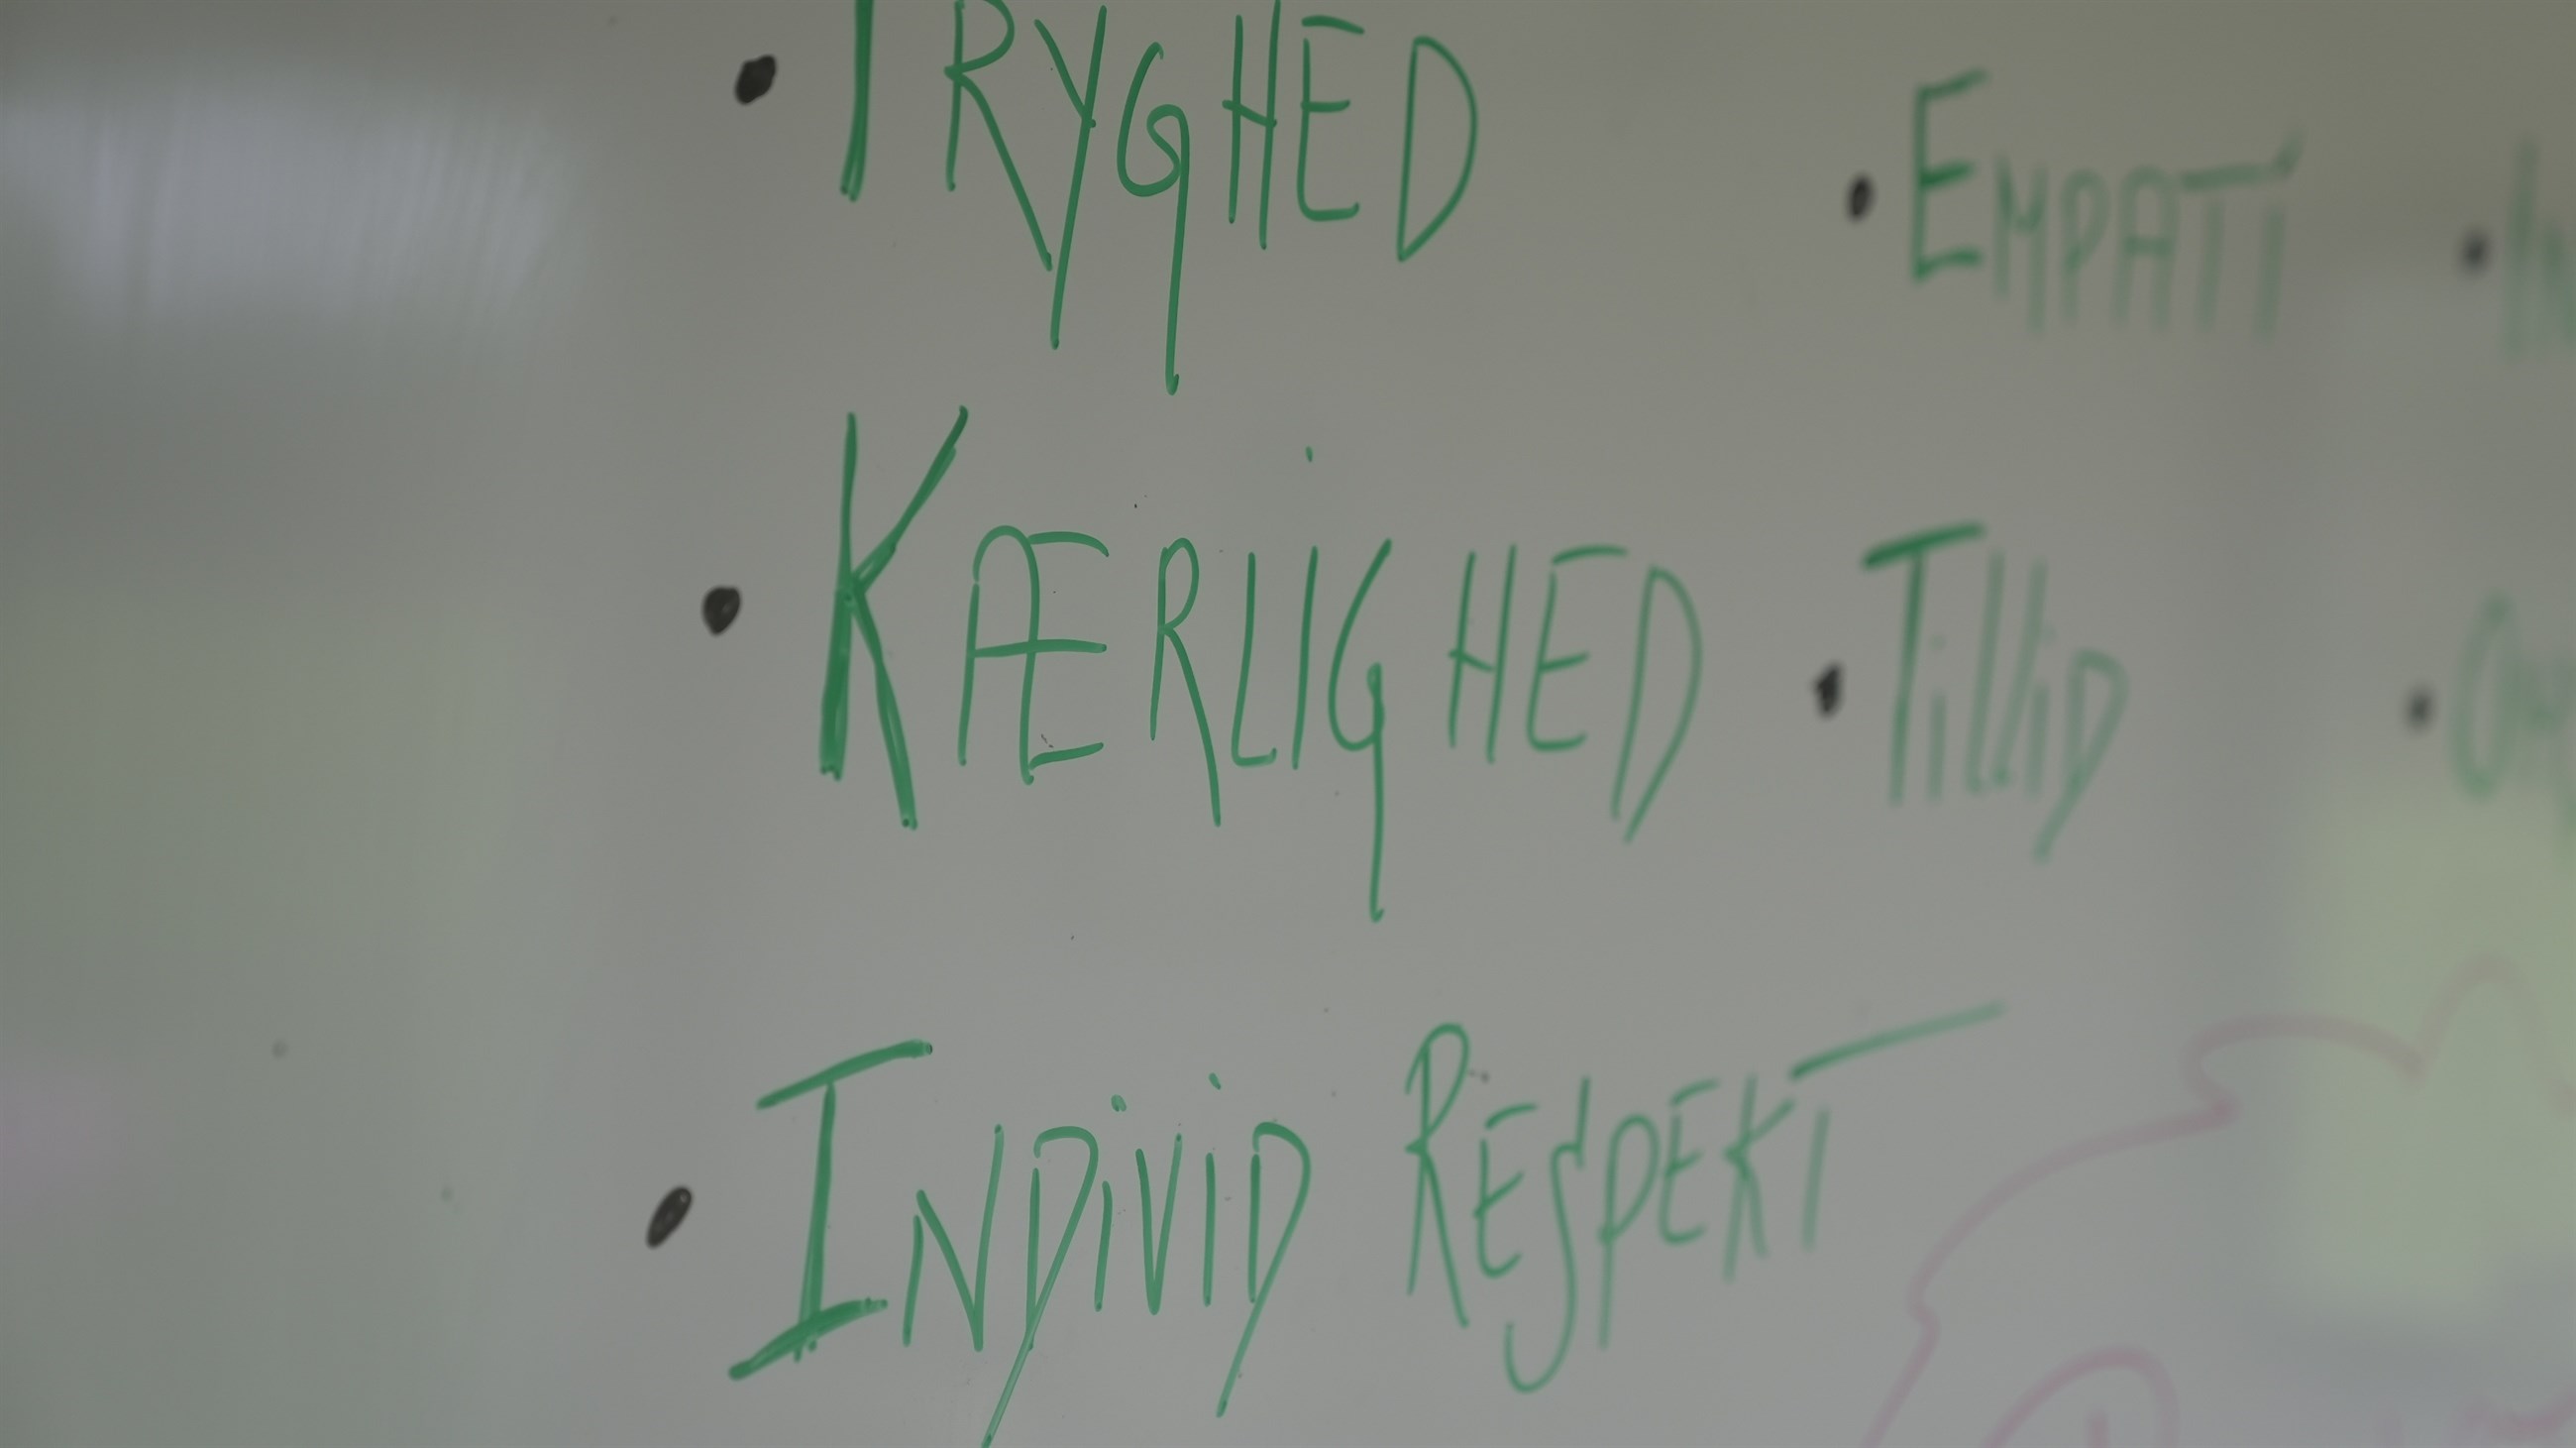 • TRYGHED
• KÆRLIGHED
• INDiViD RESPEKT
• EMPATI
• TilliD